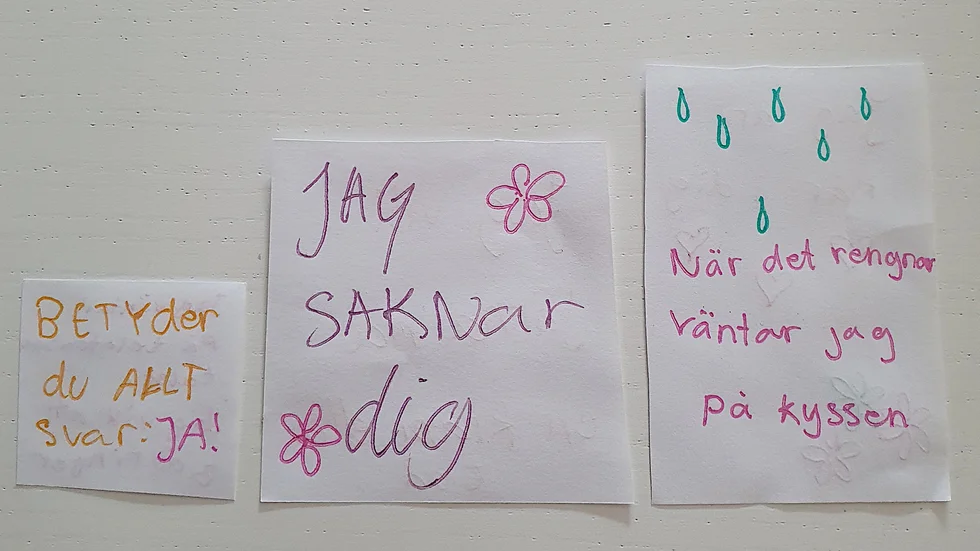 BETYder
du ALLT
svar: JA!
JAG
SAKNar
dig
När det rengnar
väntar jag
på kyssen